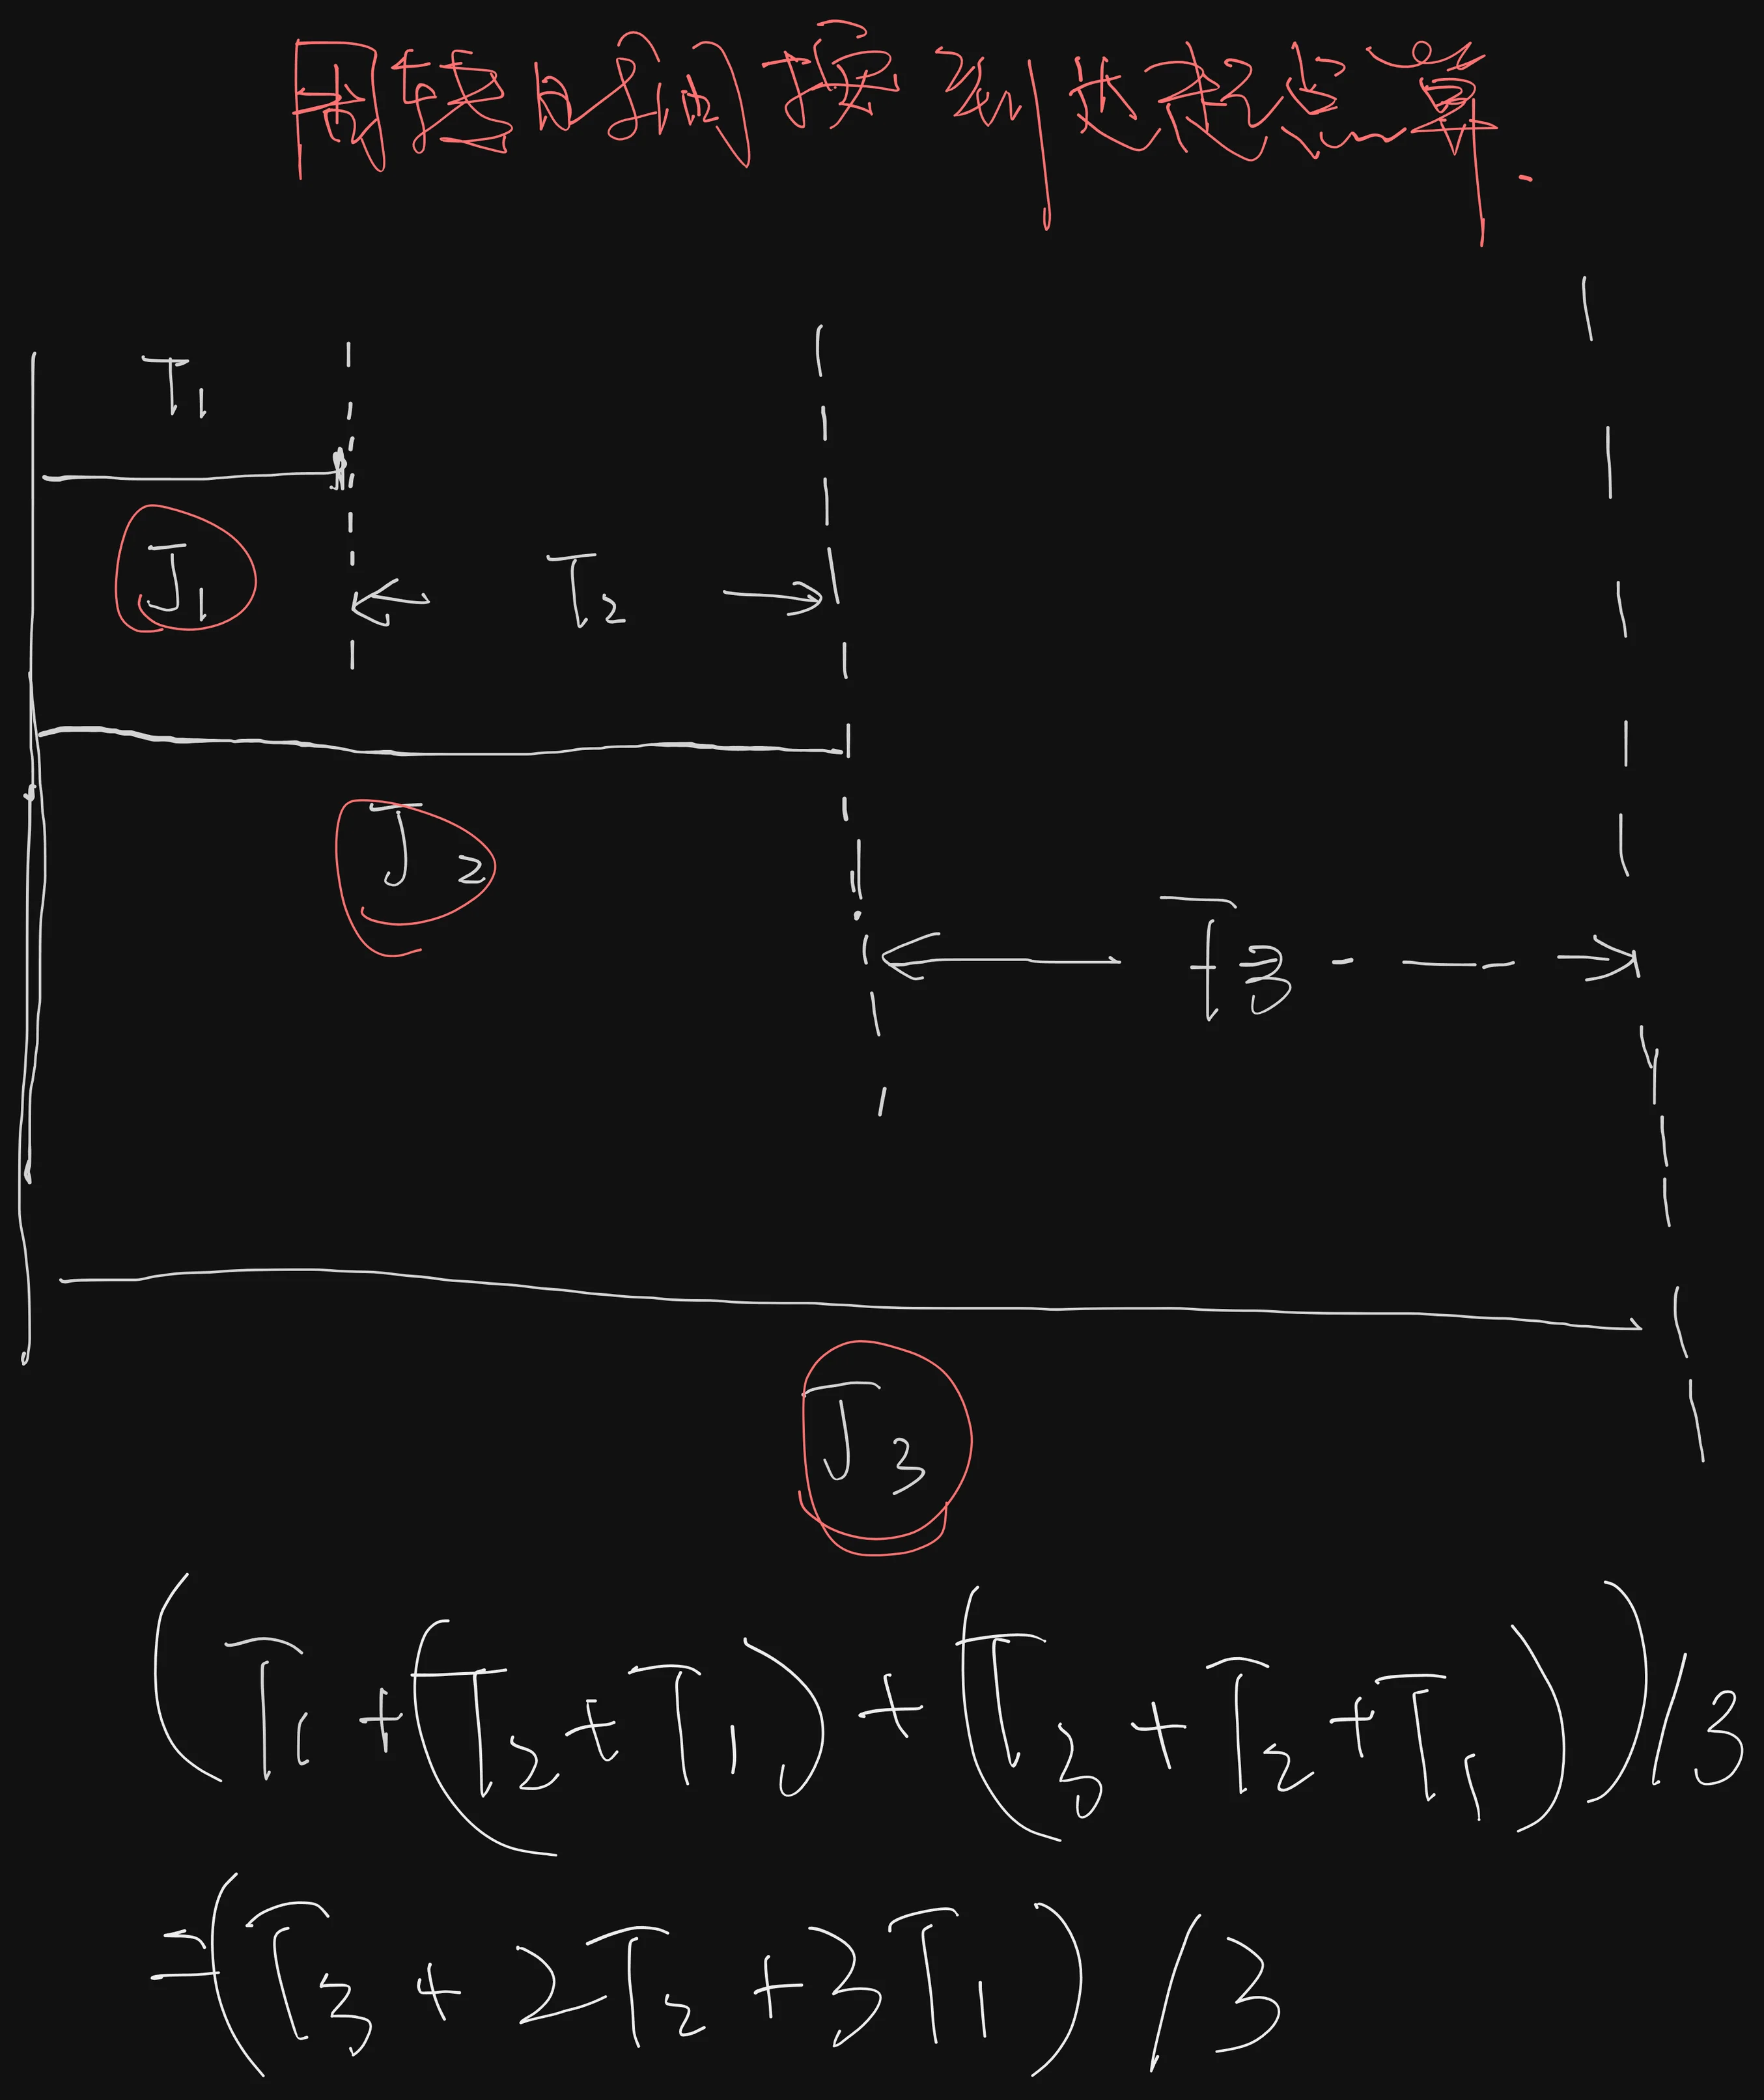 周转时间按到达起点算.
T1
J1
T2
J2
T3
J3
(T1+(T2+T1)+(T3+T2+T1))/3
=(T3+2T2+3T1)/3